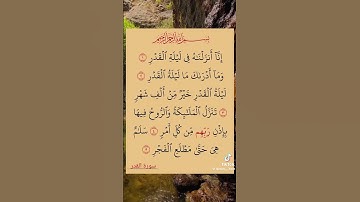 بسم الله الرحمن الرحيم
إِنَّآ أَنزَلْنَٰهُ فِى لَيْلَةِ ٱلْقَدْرِ ١
وَمَآ أَدْرَىٰكَ مَا لَيْلَةُ ٱلْقَدْرِ ٢
لَيْلَةُ ٱلْقَدْرِ خَيْرٌ مِّنْ أَلْفِ شَهْرٍ
٣ تَنَزَّلُ ٱلْمَلَٰٓئِكَةُ وَٱلرُّوحُ فِيهَا
بِإِذْنِ رَبِّهِم مِّن كُلِّ أَمْرٍ ٤ سَلَٰمٌ
هِىَ حَتَّىٰ مَطْلَعِ ٱلْفَجْرِ ٥
سورة القدر